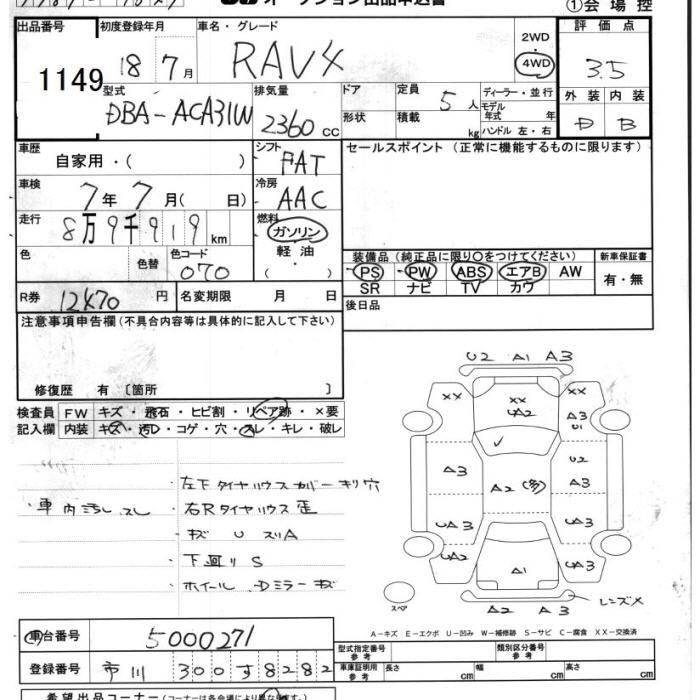 オークション出品申込書
①会場控
出品番号 初度登録年月 車名・グレード 2WD 評価点
1149 18年7月 RAV4 4WD 3.5
型式 排気量 ドア 定員 5人 ディーラー・並行 外装 内装
DBA-ACA31W 2360cc 形状 積載 kg モデル年式 年 D B
ハンドル 左・右
車歴 シフト セールスポイント (正常に機能するものに限ります)
自家用・( ) FAT
車検 7年7月( 日) 冷房 AAC
走行 8万9千919km 燃料 ガソリン
軽油
( )
色 色替 色コード 070
装備品 (純正品に限り○をつけてください) 新車保証書
PS PW ABS エアB AW 有・無
SR ナビ TV カワ
R券 12470円 名変期限 月 日 後日品
注意事項申告欄 (不具合内容等は具体的に記入して下さい)
修復歴 有 〔箇所 〕
検査員 FW キズ・飛石・ヒビ割・リペア跡・×要
記入欄 内装 キズ・汚レ・コゲ・穴・スレ・キレ・破レ
U2 A1 A3
XX XX UA2 A3 U1
A3 A2 (多) U2 A3
UA3 UA3
UA2 A1 UA3
A2 A2 A3 レンズX
スペア
・左下タイヤハウスカバーキリ穴
・車内汚レ、スレ ・右Rタイヤハウス歪
・キズ U スリA
・下廻りS
・ホイール、Dミラーキズ
A-キズ E-エクボ U-凹み W-補修跡 S-サビ C-腐食 XX-交換済
車台番号 5000271
型式指定番号 参考 類別区分番号 参考
登録番号 市川 300 す 8282
車庫証明用 参考 長さ cm 幅 cm 高さ cm
希望出品コーナー